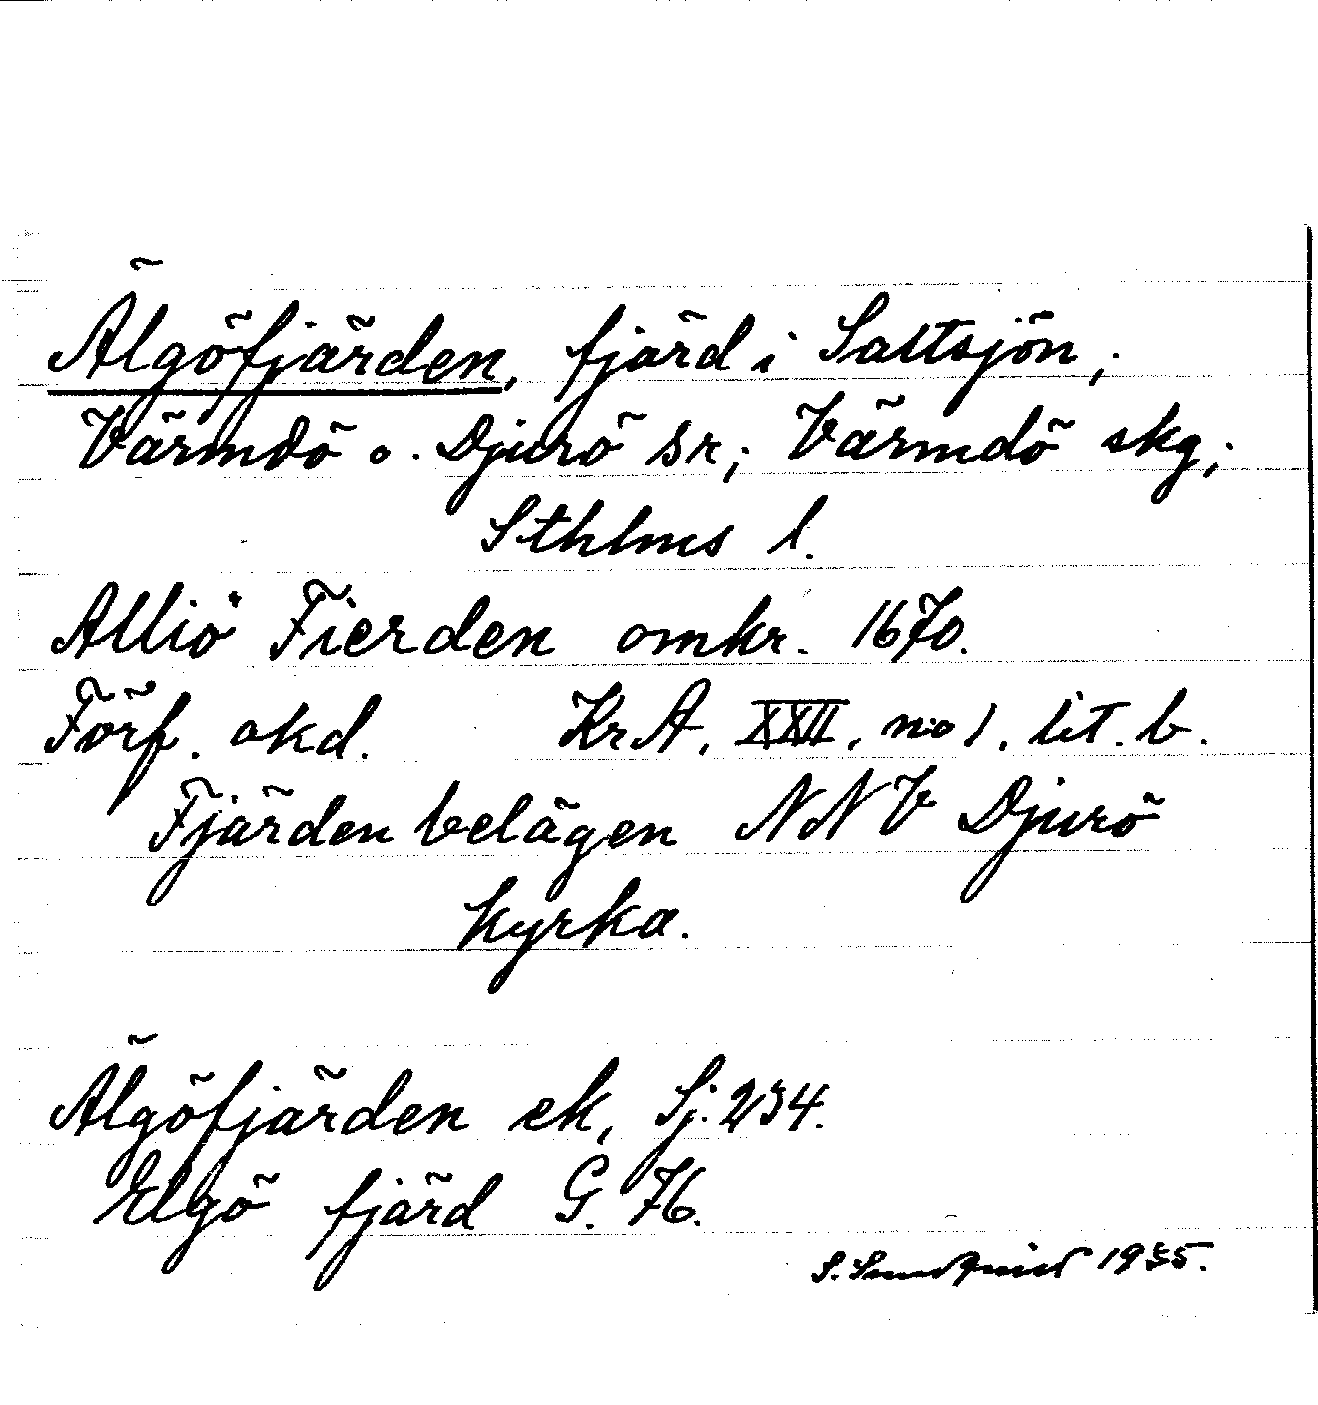 Älgöfjärden, fjärd i Saltsjön,
Värmdö o. Djurö sn; Värmdö skg;
Sthlms l.
Alliö Fierden omkr. 1670.
Förf. okd. KrA, XXII, no 1. lit. b.
Fjärden belägen NNV Djurö
kyrka.
Älgöfjärden ek, Sj. 234.
Elgö fjärd G. 76.
S. Sundquist 1935.